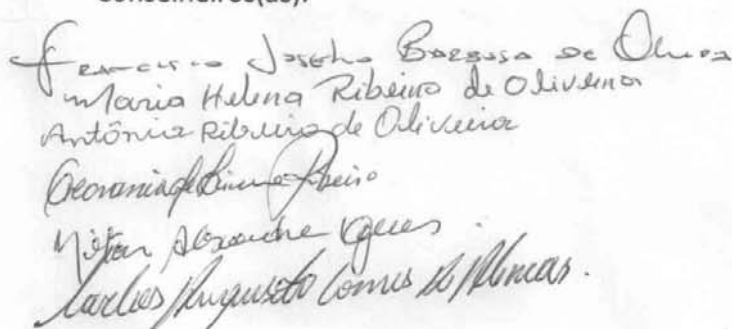 conselheiros(as):
Francisco Joseho Barbosa de Oliveira
Maria Helena Ribeiro de Oliveira
Antônia Ribeiro de Oliveira
Ribeiro
Alexandre
Carlos Augusto Gomes de